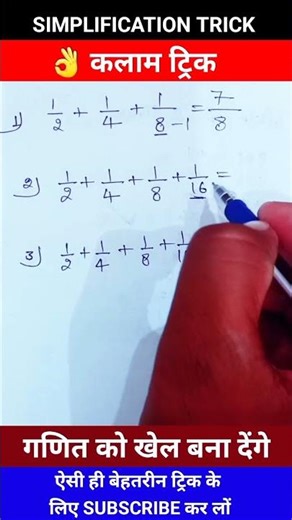 SIMPLIFICATION TRICK
👌 कलाम ट्रिक
1) 1/2 + 1/4 + 1/8-1 = 7/8
2) 1/2 + 1/4 + 1/8 + 1/16 =
3) 1/2 + 1/4 + 1/8 + 1/1
गणित को खेल बना देंगे
ऐसी ही बेहतरीन ट्रिक के
लिए SUBSCRIBE कर लों